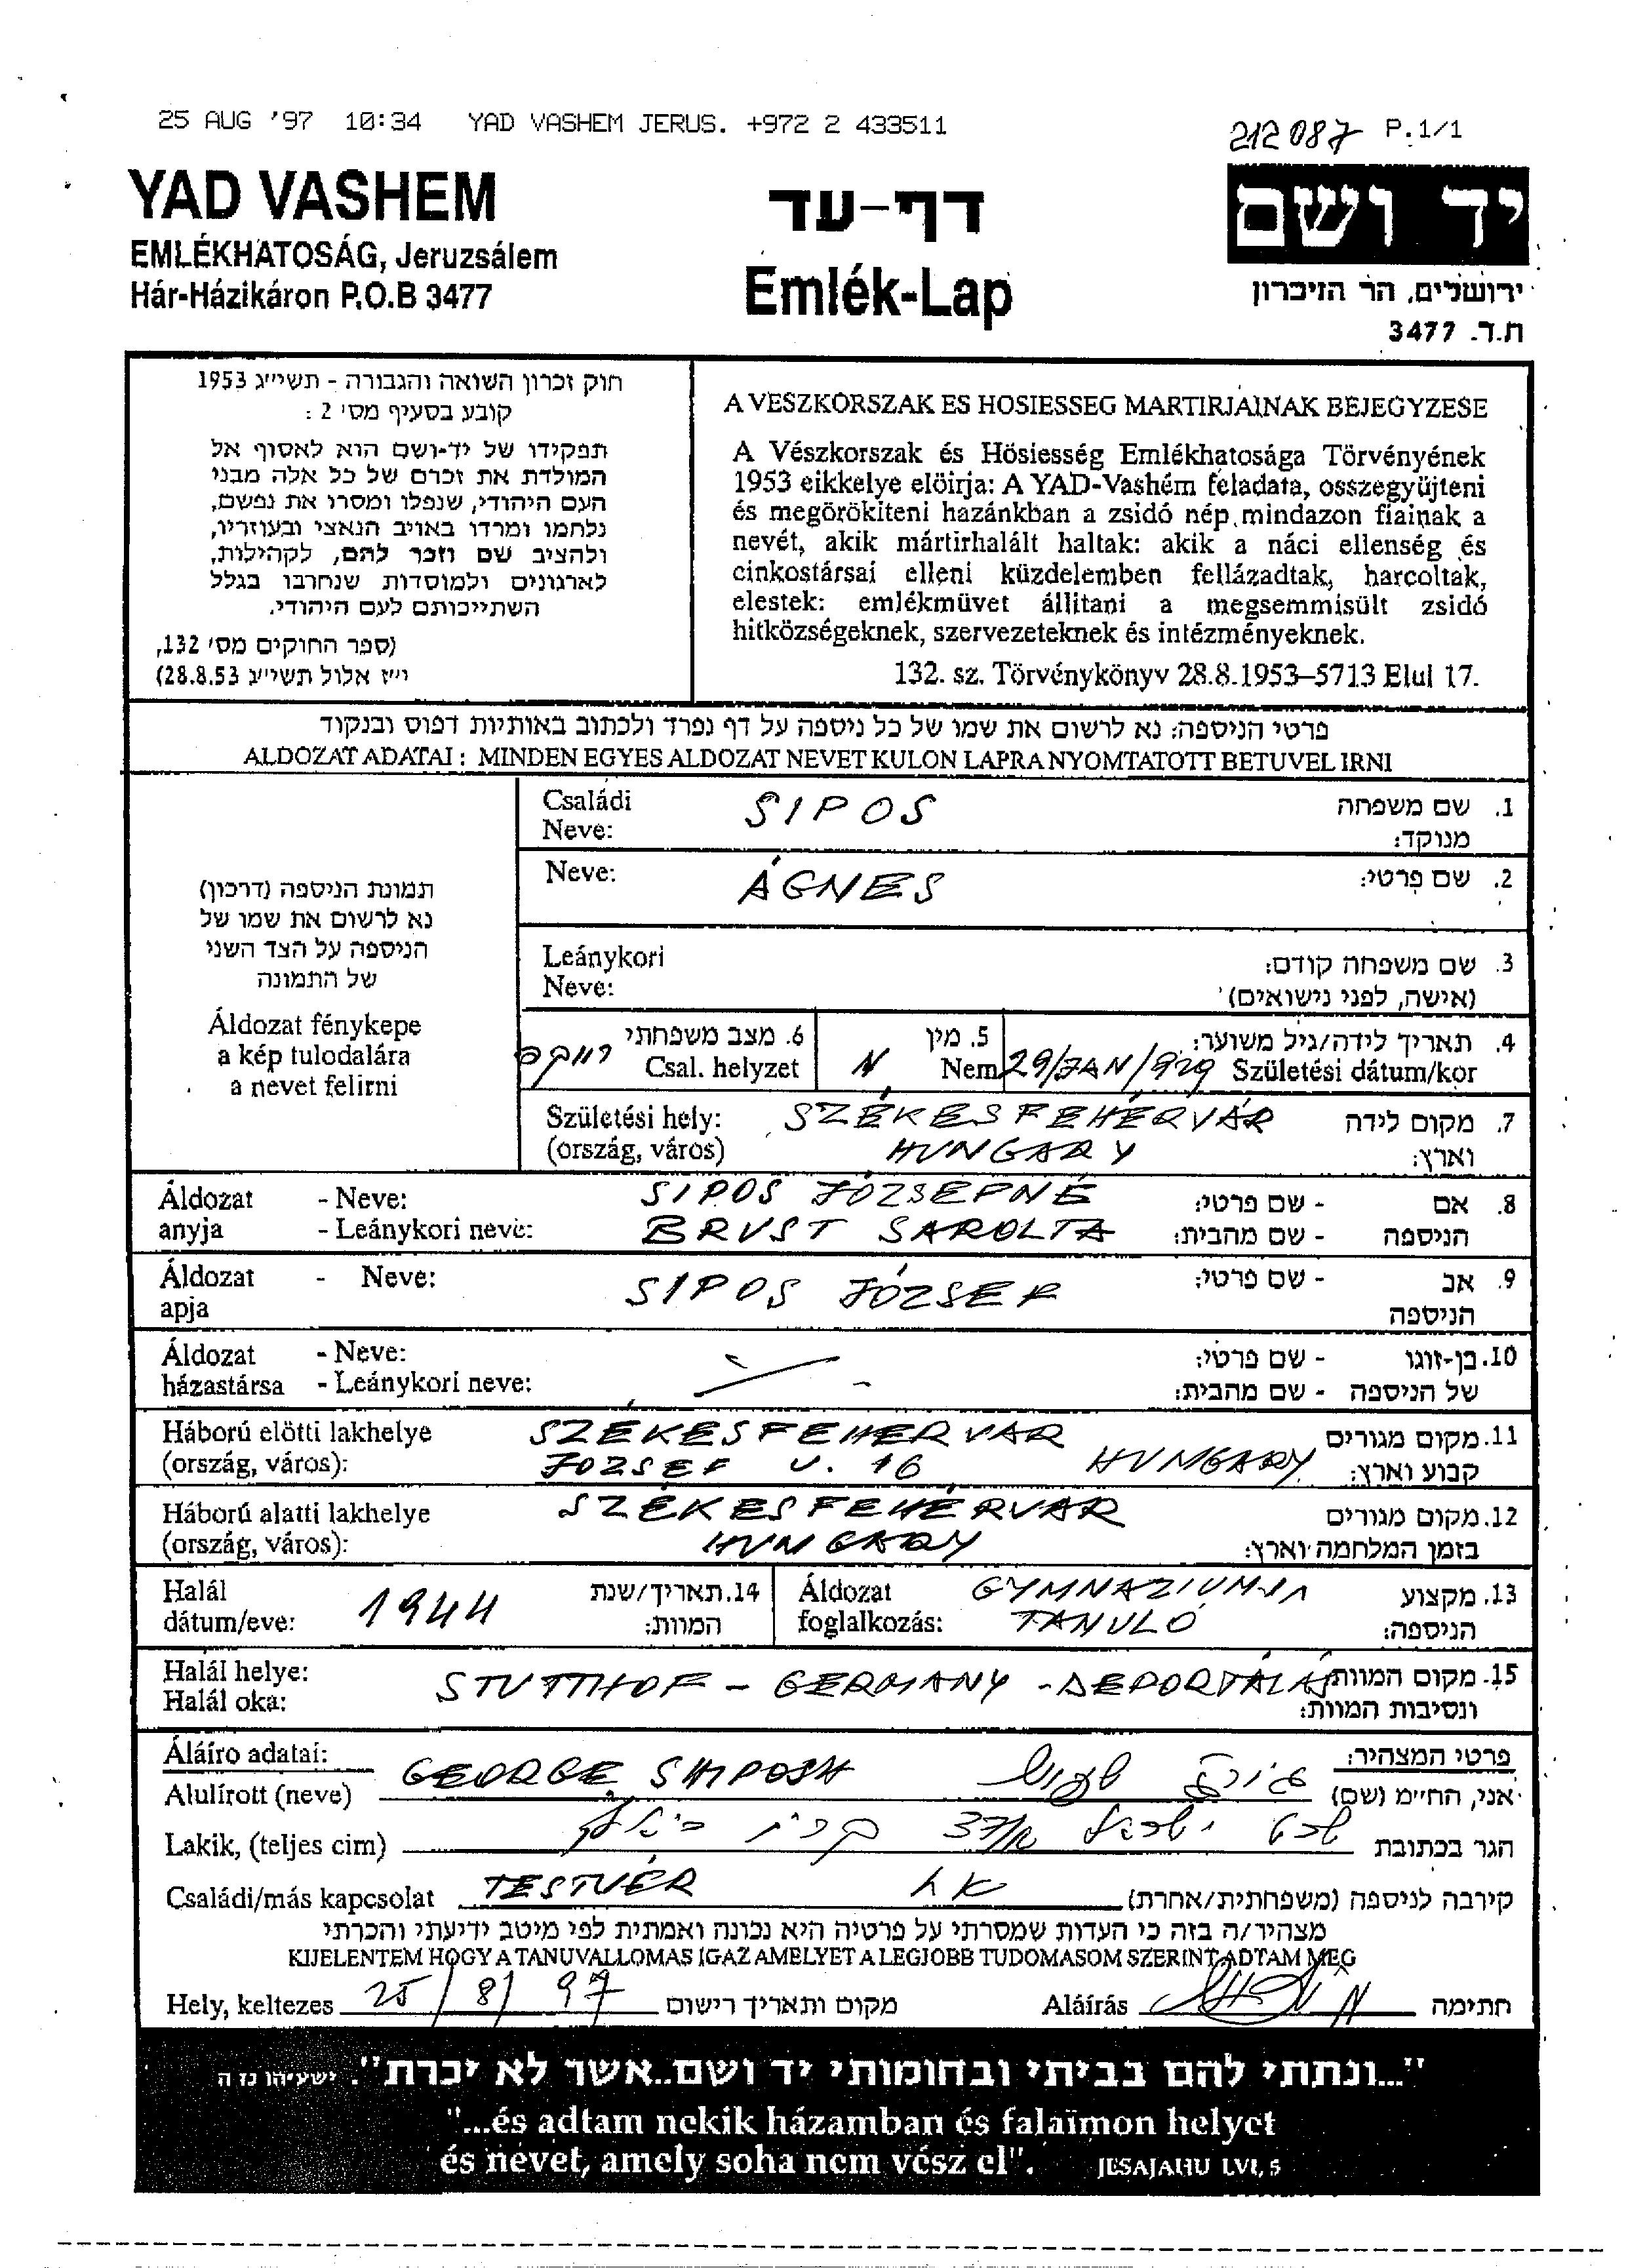 25 AUG '97 10:34 YAD VASHEM JERUS. +972 2 433511 P.1/1
212087
YAD VASHEM
EMLÉKHATOSÁG, Jeruzsálem
Hár-Házikáron P.O.B 3477
דף-עד
Emlék-Lap
יד ושם
ירושלים, הר הזיכרון
ת.ד. 3477
חוק זכרון השואה והגבורה - תשי״ג 1953
קובע בסעיף מס׳ 2 :
תפקידו של יד-ושם הוא לאסוף אל
המולדת את זכרם של כל אלה מבני
העם היהודי, שנפלו ומסרו את נפשם,
נלחמו ומרדו באויב הנאצי ובעוזריו,
ולהציב שם וזכר להם, לקהילות,
לארגונים ולמוסדות שנחרבו בגלל
השתייכותם לעם היהודי.
(ספר החוקים מס׳ 132,
י״ז אלול תשי״ג 28.8.53)
A VESZKORSZAK ES HOSIESSEG MARTIRJAINAK BEJEGYZESE
A Vészkorszak és Hösiesség Emlékhatosága Törvényének
1953 eikkelye elöirja: A YAD-Vashém feladata, osszegyüjteni
és megörökiteni hazánkban a zsidó nép mindazon fiainak a
nevét, akik mártirhalált haltak: akik a náci ellenség és
cinkostársai elleni küzdelemben fellázadtak, harcoltak,
elestek: emlékmüvet állitani a megsemmisült zsidó
hitközségeknek, szervezeteknek és intézményeknek.
132. sz. Törvénykönyv 28.8.1953–5713 Elul 17.
פרטי הניספה: נא לרשום את שמו של כל ניספה על דף נפרד ולכתוב באותיות דפוס ובנקוד
ALDOZAT ADATAI : MINDEN EGYES ALDOZAT NEVET KULON LAPRA NYOMTATOTT BETUVEL IRNI
תמונת הניספה (דרכון)
נא לרשום את שמו של
הניספה על הצד השני
של התמונה
Áldozat fénykepe
a kép tulodalára
a nevet felirni
Családi Neve: SIPOS 1. שם משפחה מנוקד:
Neve: ÁGNES 2. שם פרטי:
Leánykori Neve: 3. שם משפחה קודם:
(אישה, לפני נישואים)
6. מצב משפחתי 5. מין 4. תאריך לידה/גיל משוער:
רווקה Csal. helyzet N Nem 29/JAN/929 Születési dátum/kor
Születési hely: SZÉKESFEHÉRVÁR 7. מקום לידה
(ország, város) HUNGARY וארץ:
Áldozat - Neve: SIPOS JÓZSEFNÉ - שם פרטי: 8. אם
anyja - Leánykori neve: BRUST SAROLTA - שם מהבית: הניספה
Áldozat - Neve: SIPOS JÓZSEF - שם פרטי: 9. אב
apja הניספה
Áldozat - Neve: - שם פרטי: 10. בן-זוגו
házastársa - Leánykori neve: - שם מהבית: של הניספה
Háború elötti lakhelye SZEKESFEHERVAR 11. מקום מגורים
(ország, város): JOZSEF U. 16 HUNGARY קבוע וארץ:
Háború alatti lakhelye SZÉKESFEHÉRVAR 12. מקום מגורים
(ország, város): HUNGARY בזמן המלחמה וארץ:
Halál 14. תאריך/שנת Áldozat GYMNAZIUMIA 13. מקצוע
dátum/eve: 1944 המוות: foglalkozás: TANULÓ הניספה:
Halál helye: STUTTHOF - GERMANY - DEPORTÁLÁS 15. מקום המוות
Halál oka: ונסיבות המוות:
Áláíro adatai: פרטי המצהיר:
Alulírott (neve) GEORGE SHIPOSH אני, החיימ (שם)
Lakik, (teljes cim) 37/ הגר בכתובת
Családi/más kapcsolat TESTVÉR אח קירבה לניספה (משפחתית/אחרת)
מצהיר/ה בזה כי העדות שמסרתי על פרטיה היא נכונה ואמתית לפי מיטב ידיעתי והכרתי
KIJELENTEM HOGY A TANUVALLOMAS IGAZ AMELYET A LEGJOBB TUDOMASOM SZERINT ADTAM MEG
Hely, keltezes 25/8/97 מקום ותאריך רישום Aláírás חתימה
"...ונתתי להם בביתי ובחומותי יד ושם..אשר לא יכרת". ישעיהו נו ה
"...és adtam nekik házamban és falaïmon helyet
és nevet, amely soha nem vész el". JESAJAHU LVI, 5